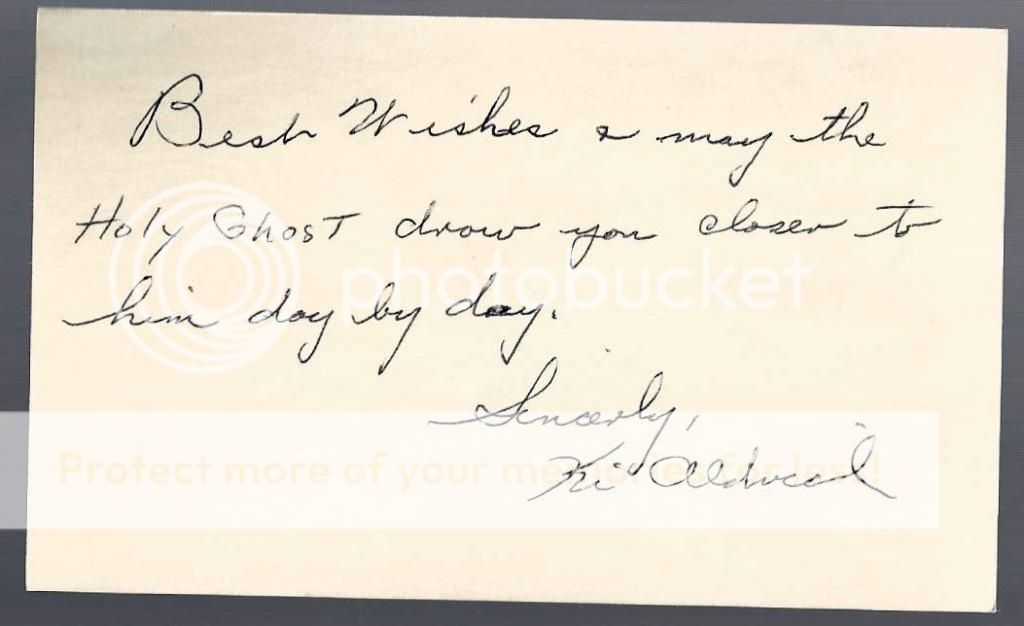 Best Wishes & may the
Holy Ghost draw you closer to
him day by day.
Sincerly,
Ki Aldrich
photobucket
Protect more of your memories for less!